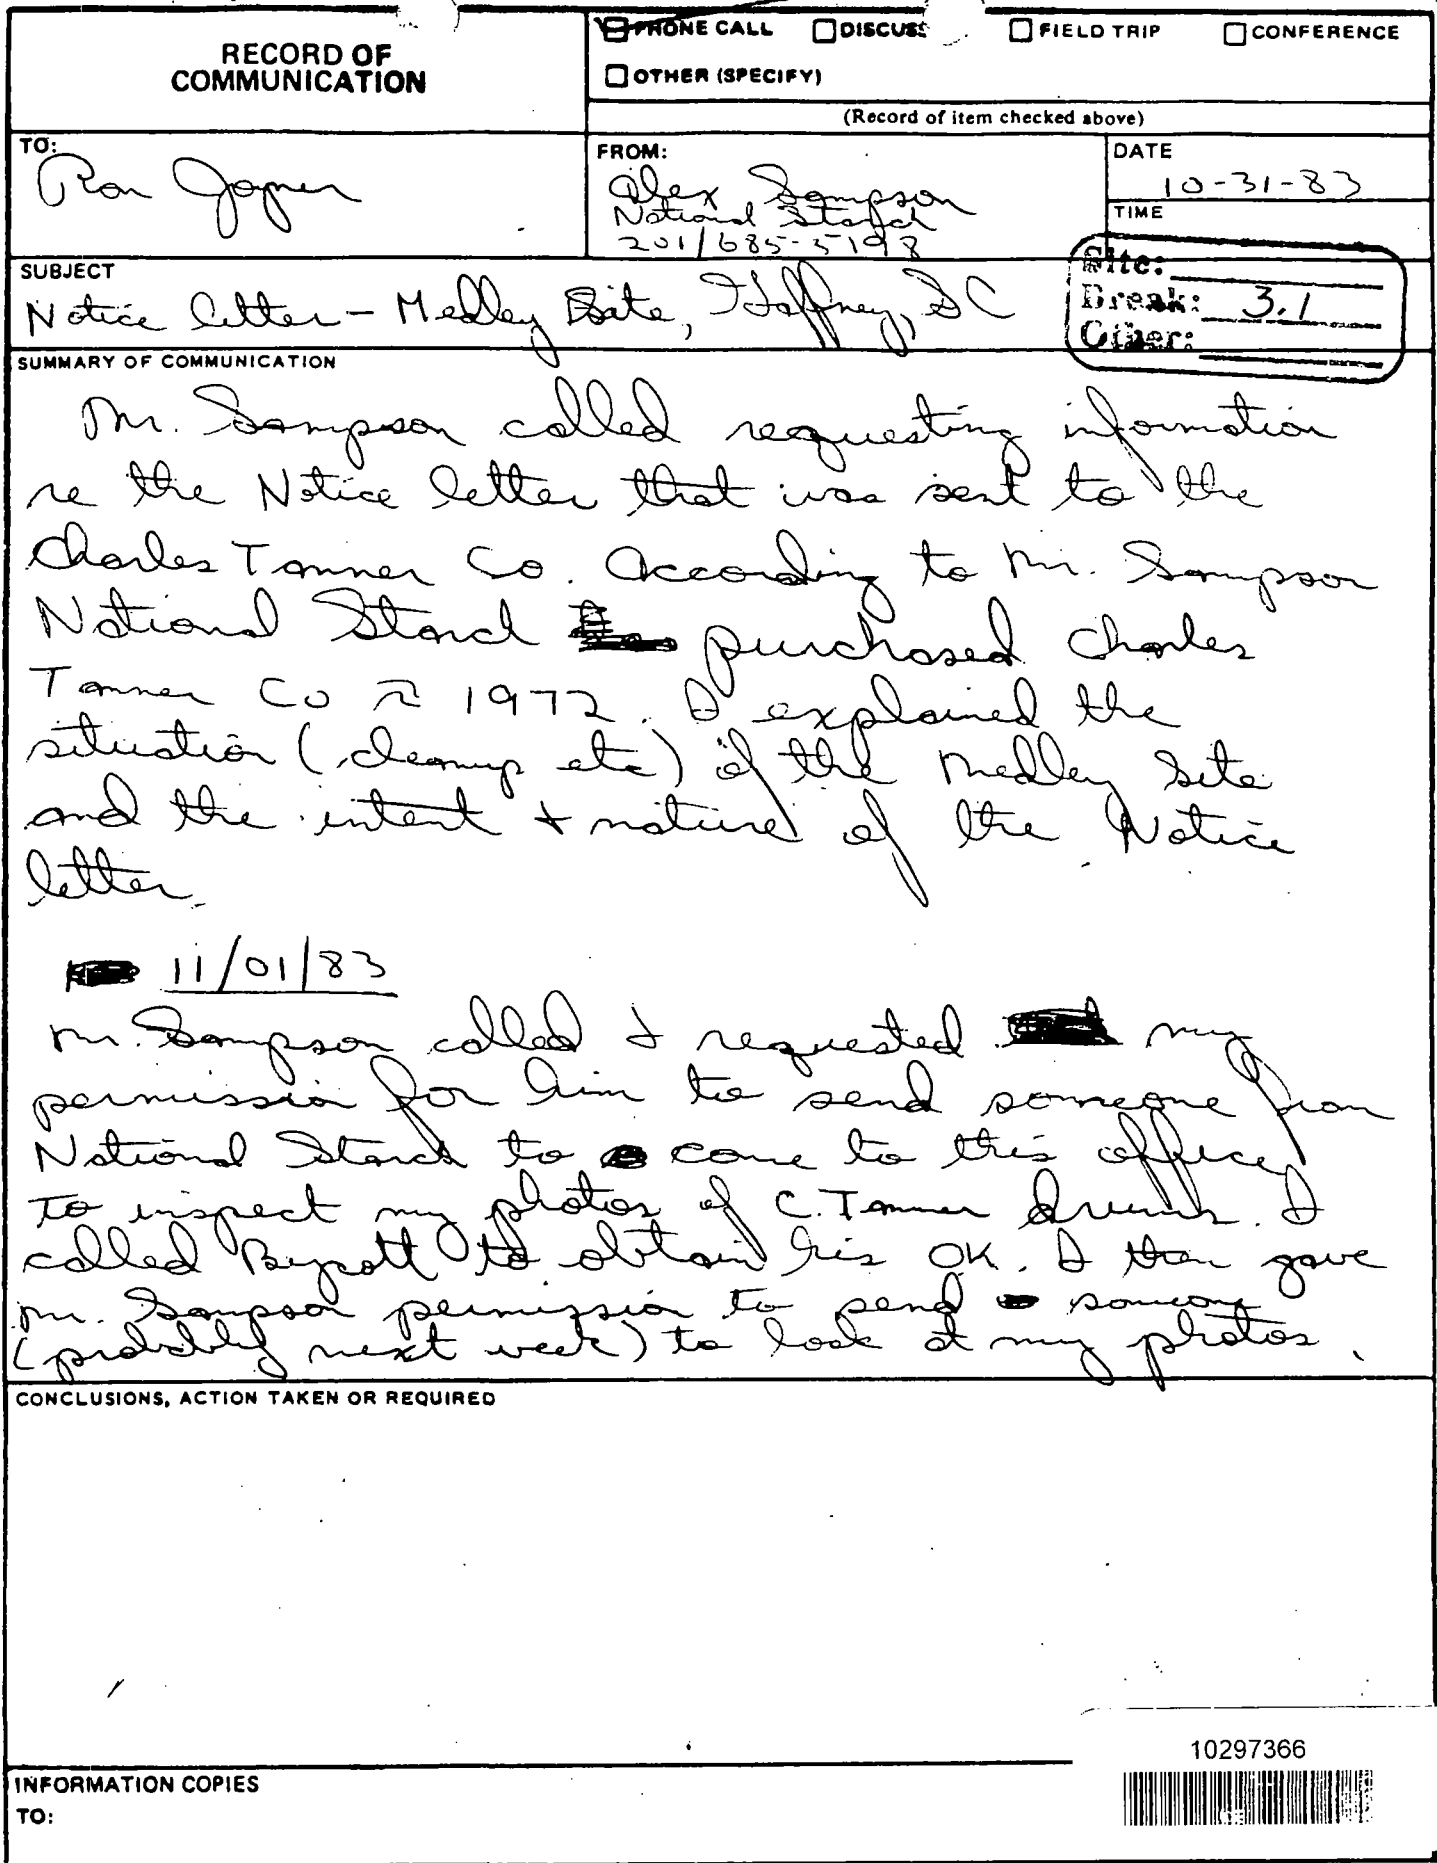 RECORD OF
COMMUNICATION
PHONE CALL
DISCUSS
FIELD TRIP
CONFERENCE
OTHER (SPECIFY)
(Record of item checked above)
TO:
Ron Joyner
FROM:
Alex Sampson
National Starch
201/685-5198
DATE
10-31-83
TIME
SUBJECT
Notice letter - Medley Site, Gaffney, SC
Site:
Break: 3.1
Other:
SUMMARY OF COMMUNICATION
Mr. Sampson called requesting information
re the Notice letter that was sent to the
Charles Tanner Co. According to Mr. Sampson
National Starch purchased Charles
Tanner Co ~ 1972. I explained the
situation (cleanup etc) of the Medley Site
and the intent + nature of the Notice
letter.
11/01/83
Mr. Sampson called & requested my
permission for him to send someone from
National Starch to come to this office
to inspect my photos of C. Tanner drums. I
called to obtain his OK. I then gave
Mr. Sampson permission to send someone
(probably next week) to look at my photos.
CONCLUSIONS, ACTION TAKEN OR REQUIRED
10297366
INFORMATION COPIES
TO: